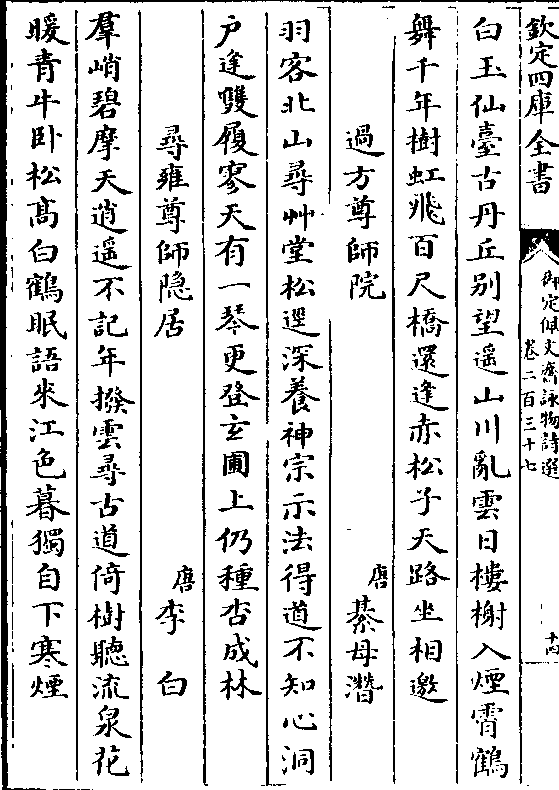 欽定四庫全書
御定佩文齋詠物詩選
卷二百三十七
十四
白玉仙臺古丹丘别望遥山川亂雲日樓榭入煙霄鶴
舞千年樹虹飛百尺橋還逢赤松子天路坐相邀
過方尊師院
唐 綦母潛
羽客北山尋艸堂松逕深養神宗示法得道不知心洞
户逢雙履寥天有一琴更登玄圃上仍種杏成林
尋雍尊師隱居
唐 李白
羣峭碧摩天逍遥不記年撥雲尋古道倚樹聽流泉花
暖青牛卧松髙白鶴眠語來江色暮獨自下寒煙